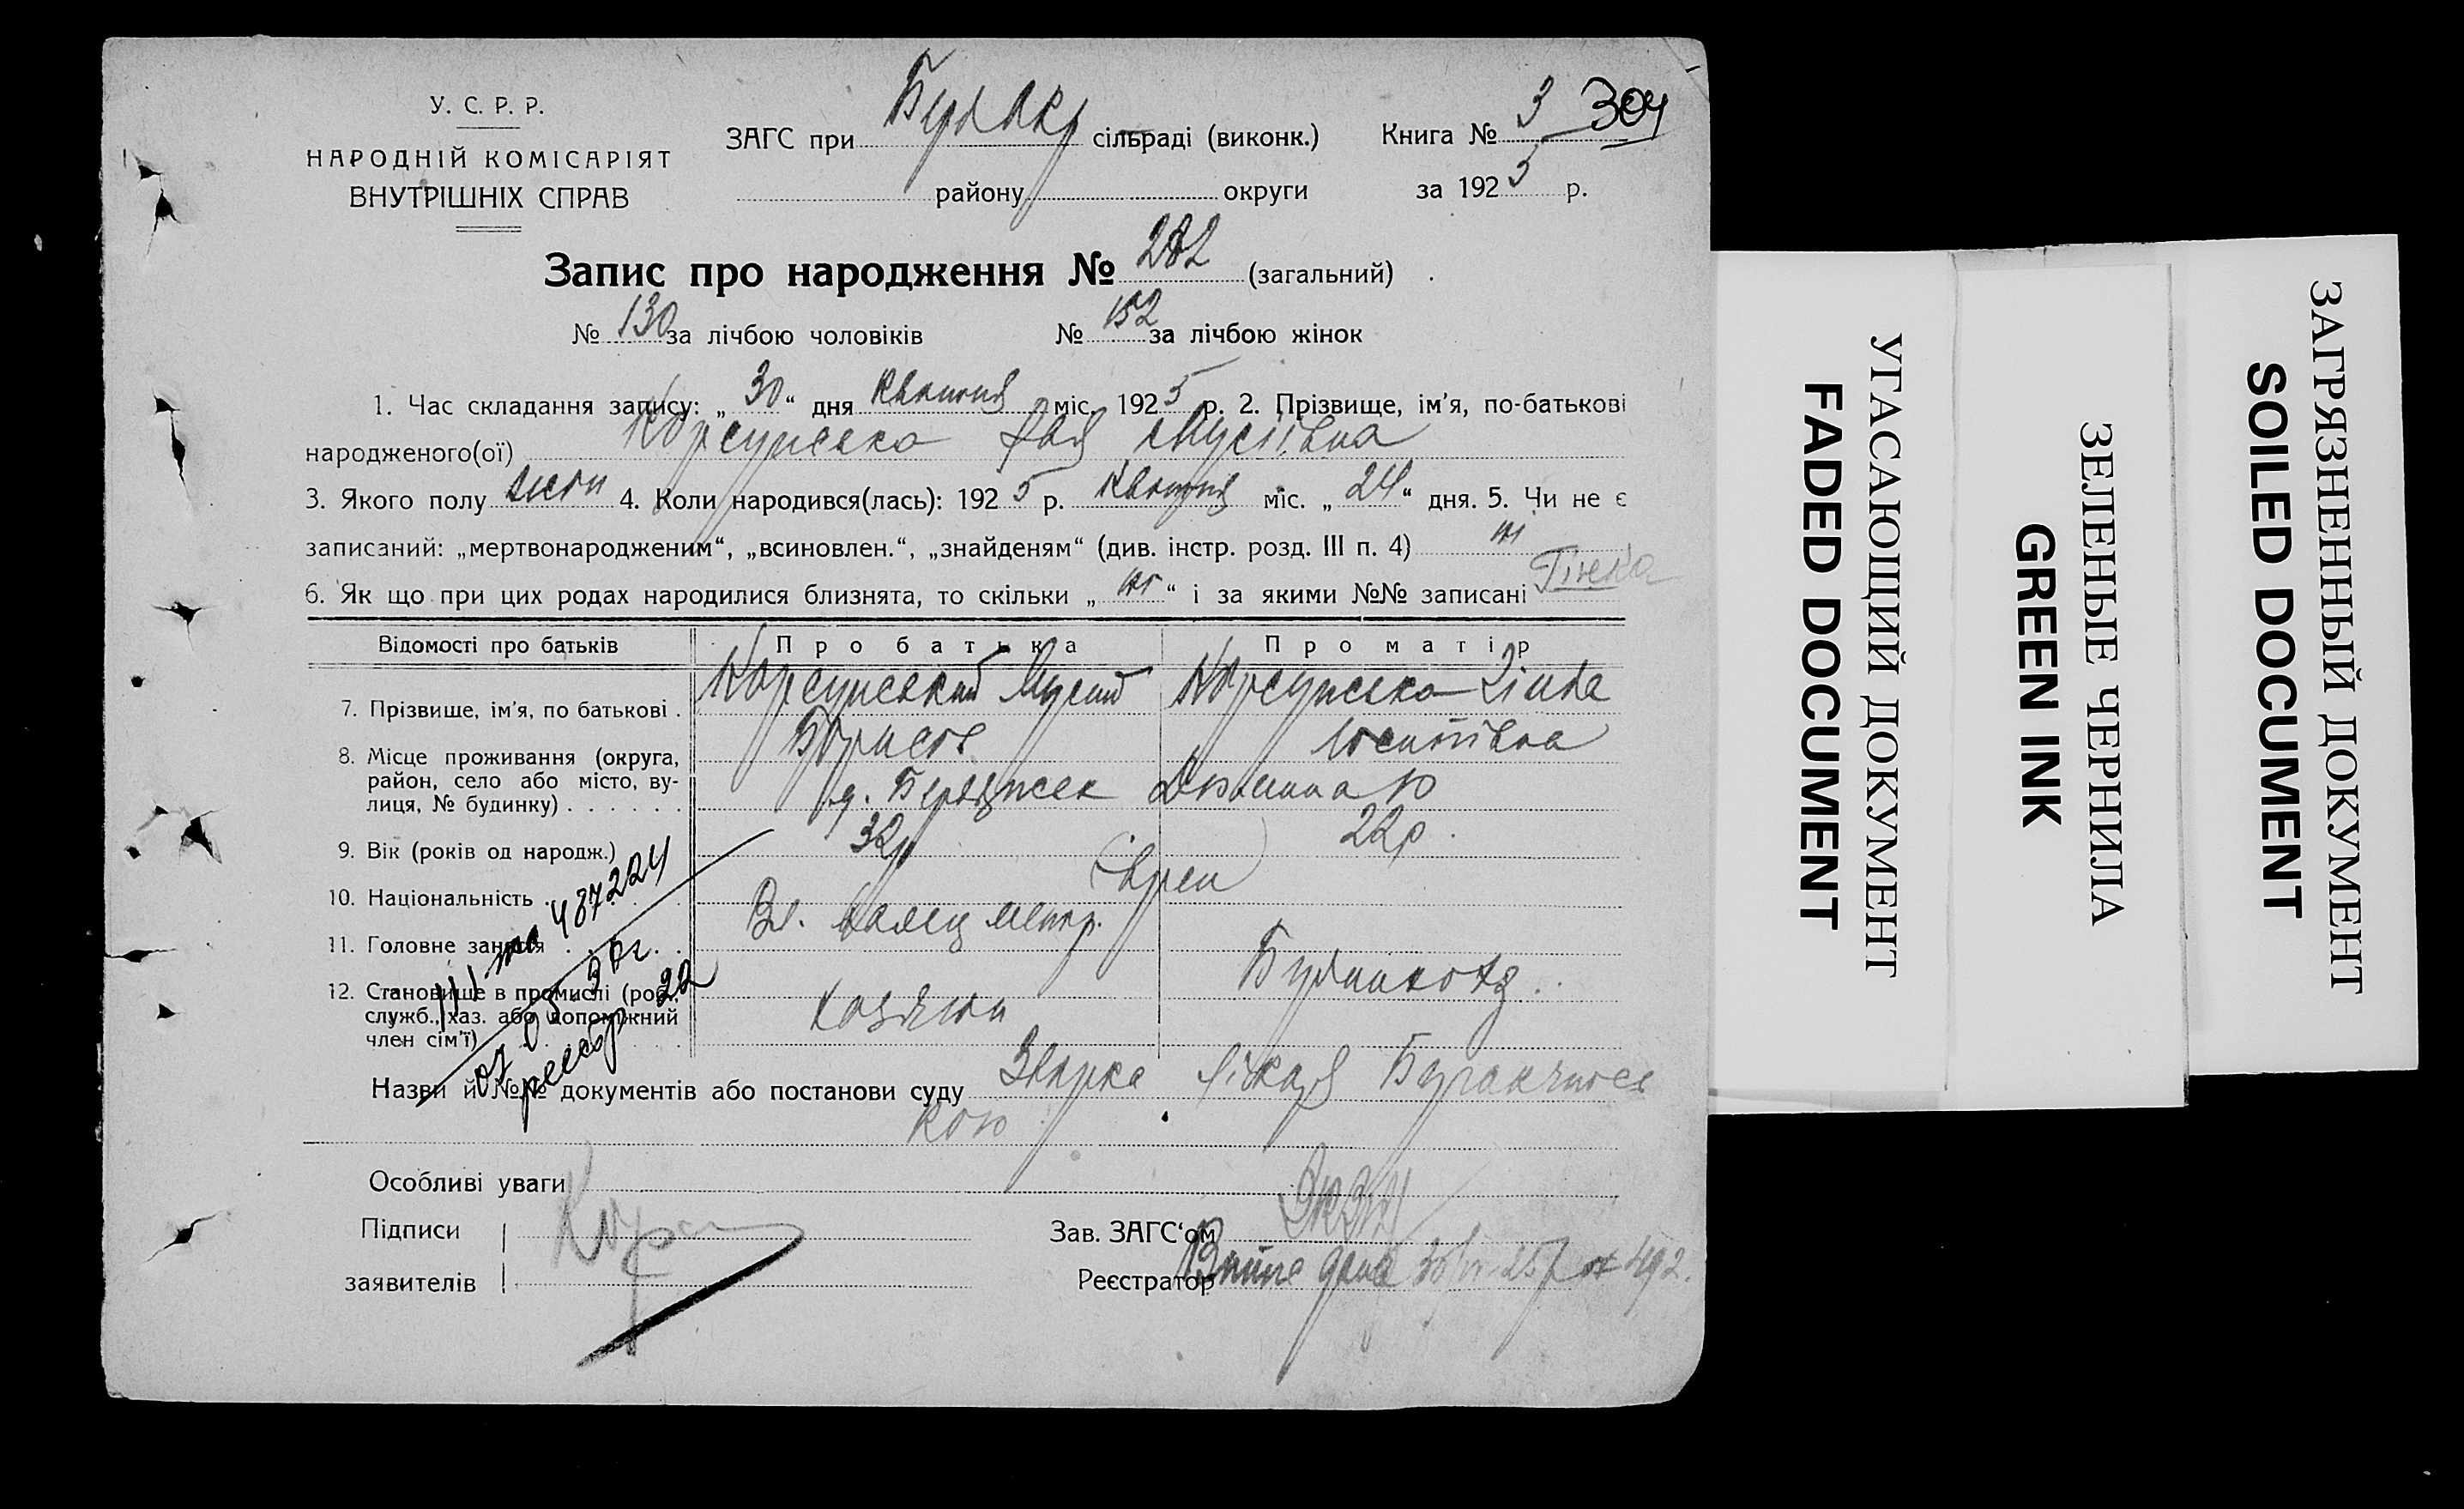 У. С. Р. Р.
НАРОДНІЙ КОМІСАРІЯТ
ВНУТРІШНІХ СПРАВ
ЗАГС при сільраді (виконк.) Книга № 3 304
району округи за 1925 р.
Запис про народження № 282 (загальний)
№ 130 за лічбою чоловіків № 152 за лічбою жінок
1. Час складання запису: „30“ дня квітня міс. 1925 р. 2. Прізвище, ім'я, по-батькові
народженого(ої) Корсунська Мусіївна
3. Якого полу жіноч 4. Коли народився(лась): 1925 р. квітня міс. „24“ дня. 5. Чи не є
записаний: „мертвонародженим“, „всиновлен.“, „знайденям“ (див. інстр. розд. III п. 4) ні
6. Як що при цих родах народилися близнята, то скільки „ні“ і за якими №№ записані
Відомості про батьків Про батька Про матір
7. Прізвище, ім'я, по батькові . Корсунський Мусій Корсунська
Борисов Йосипівна
8. Місце проживання (округа,
район, село або місто, ву-
лиця, № будинку) . . . . . . 10
9. Вік (років од народж.) 32р 22р.
10. Національність . Євреи
11. Головне заняття . .
12. Становище в промислі (роб.,
служб., хаз. або допоміжний
член сім'ї) Хазяїн
III 487224
05 90г.
22
Назви й №№ документів або постанови суду лікаря
кою
Особливі уваги
Підписи Зав. ЗАГС‘ом
заявителів Реєстратор дана 492.
УГАСАЮЩИЙ ДОКУМЕНТ
FADED DOCUMENT
ЗЕЛЕНЫЕ ЧЕРНИЛА
GREEN INK
ЗАГРЯЗНЕННЫЙ ДОКУМЕНТ
SOILED DOCUMENT